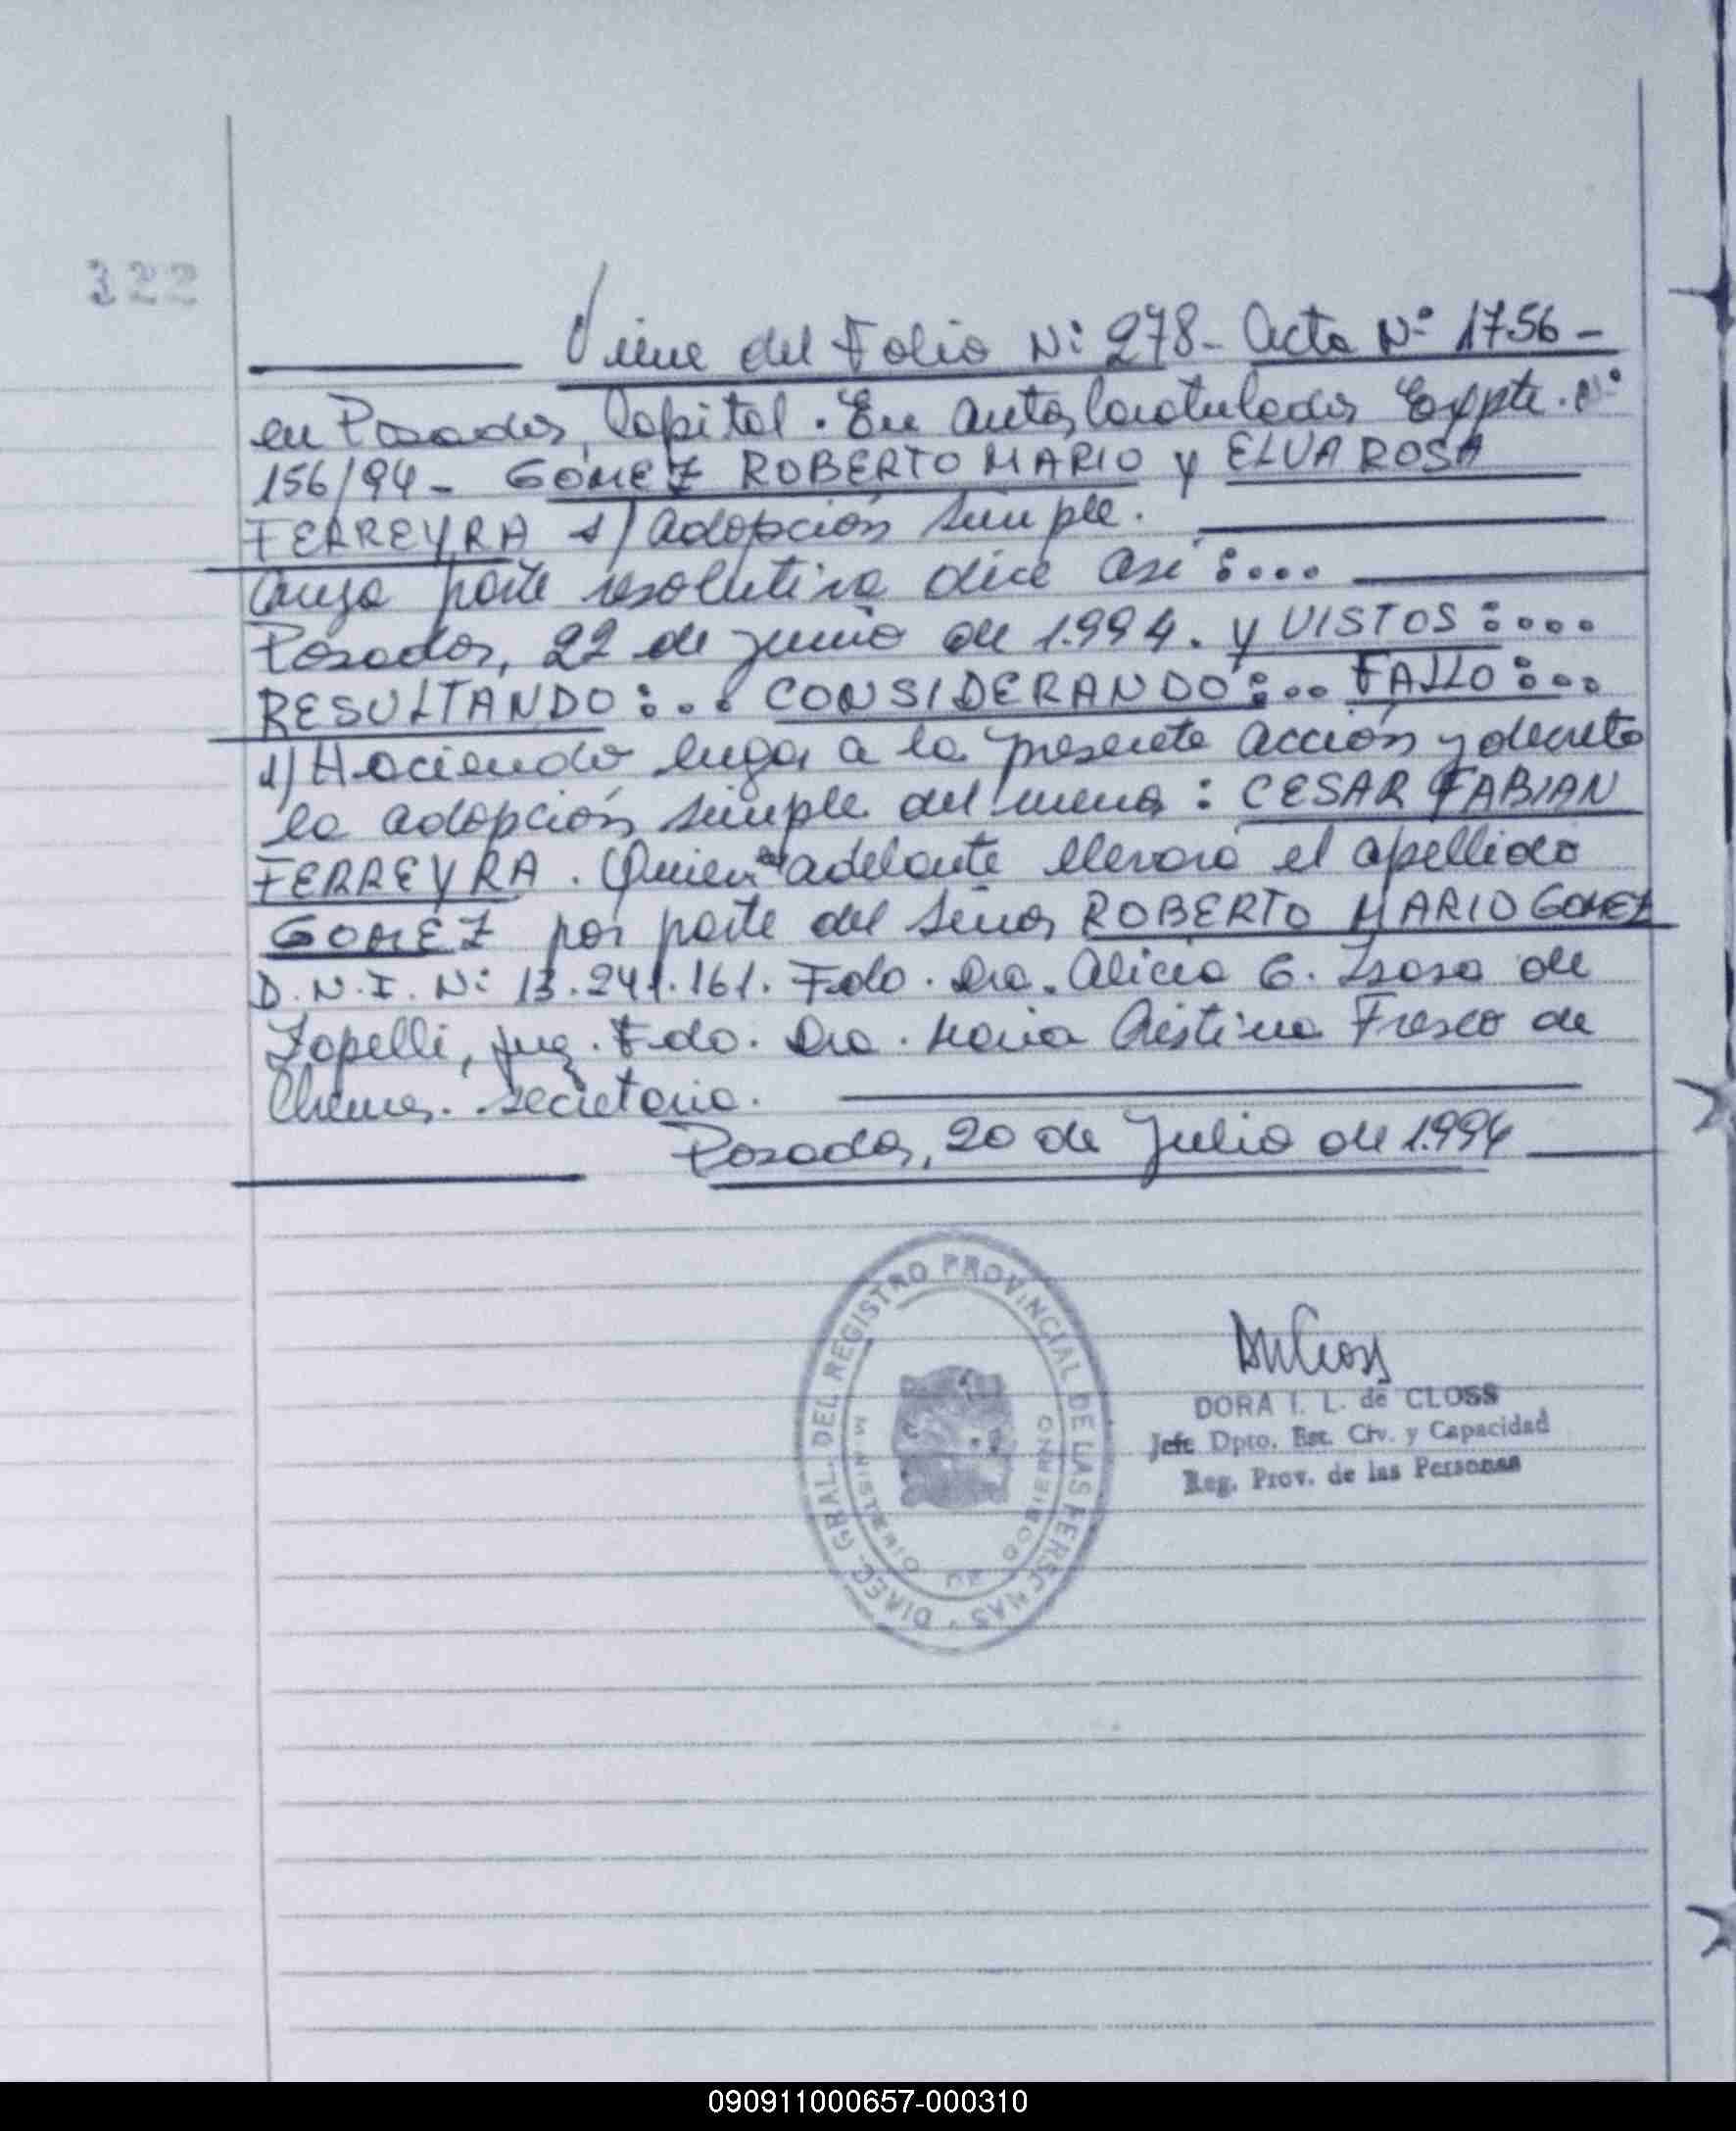 322
Viene del Folio Nº 278 - Acta Nº 1756 -
en Posadas, Capital. En autos caratulados Expte. Nº
156/94 - GÓMEZ ROBERTO MARIO y ELVA ROSA
FERREYRA s/ adopción simple.
Cuya parte resolutiva dice así:...
Posadas, 22 de junio de 1.994. y VISTOS:....
RESULTANDO:... CONSIDERANDO:... FALLO:...
1) Haciendo lugar a la presente acción y decreto
la adopción simple del menor: CESAR FABIAN
FERREYRA. Quien en adelante llevará el apellido
GOMEZ por parte del Señor ROBERTO MARIO GOMEZ
D.N.I. Nº 13.241.161. Fdo. Dra. Alicia G. de
Zapelli, Juez. Fdo. Dra. Maria Cristina Fresco de
secretaria.
Posadas, 20 de Julio de 1.994
DIREC. GRAL. DEL REGISTRO PROVINCIAL DE LAS PERSONAS
MINISTERIO DE GOBIERNO
DORA I. L. de CLOSS
Jefe Dpto. Est. Civ. y Capacidad
Reg. Prov. de las Personas
090911000657-000310